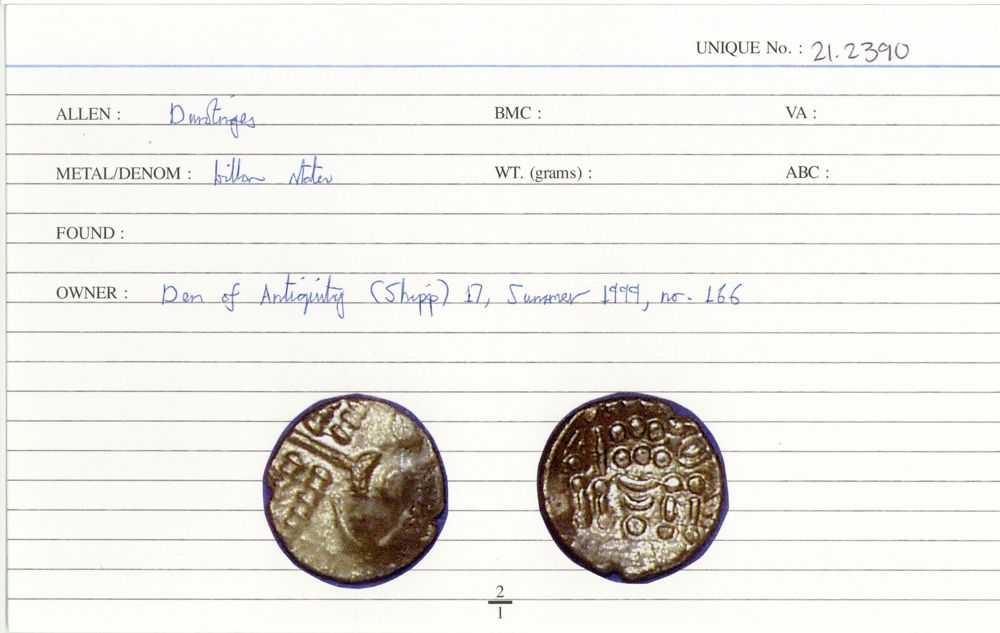 UNIQUE No. : 21.2390
ALLEN : Durotriges BMC : VA :
METAL/DENOM : billon stater WT. (grams) : ABC :
FOUND :
OWNER : Den of Antiquity (Shipp) 17, Summer 1999, no. 166
2
1